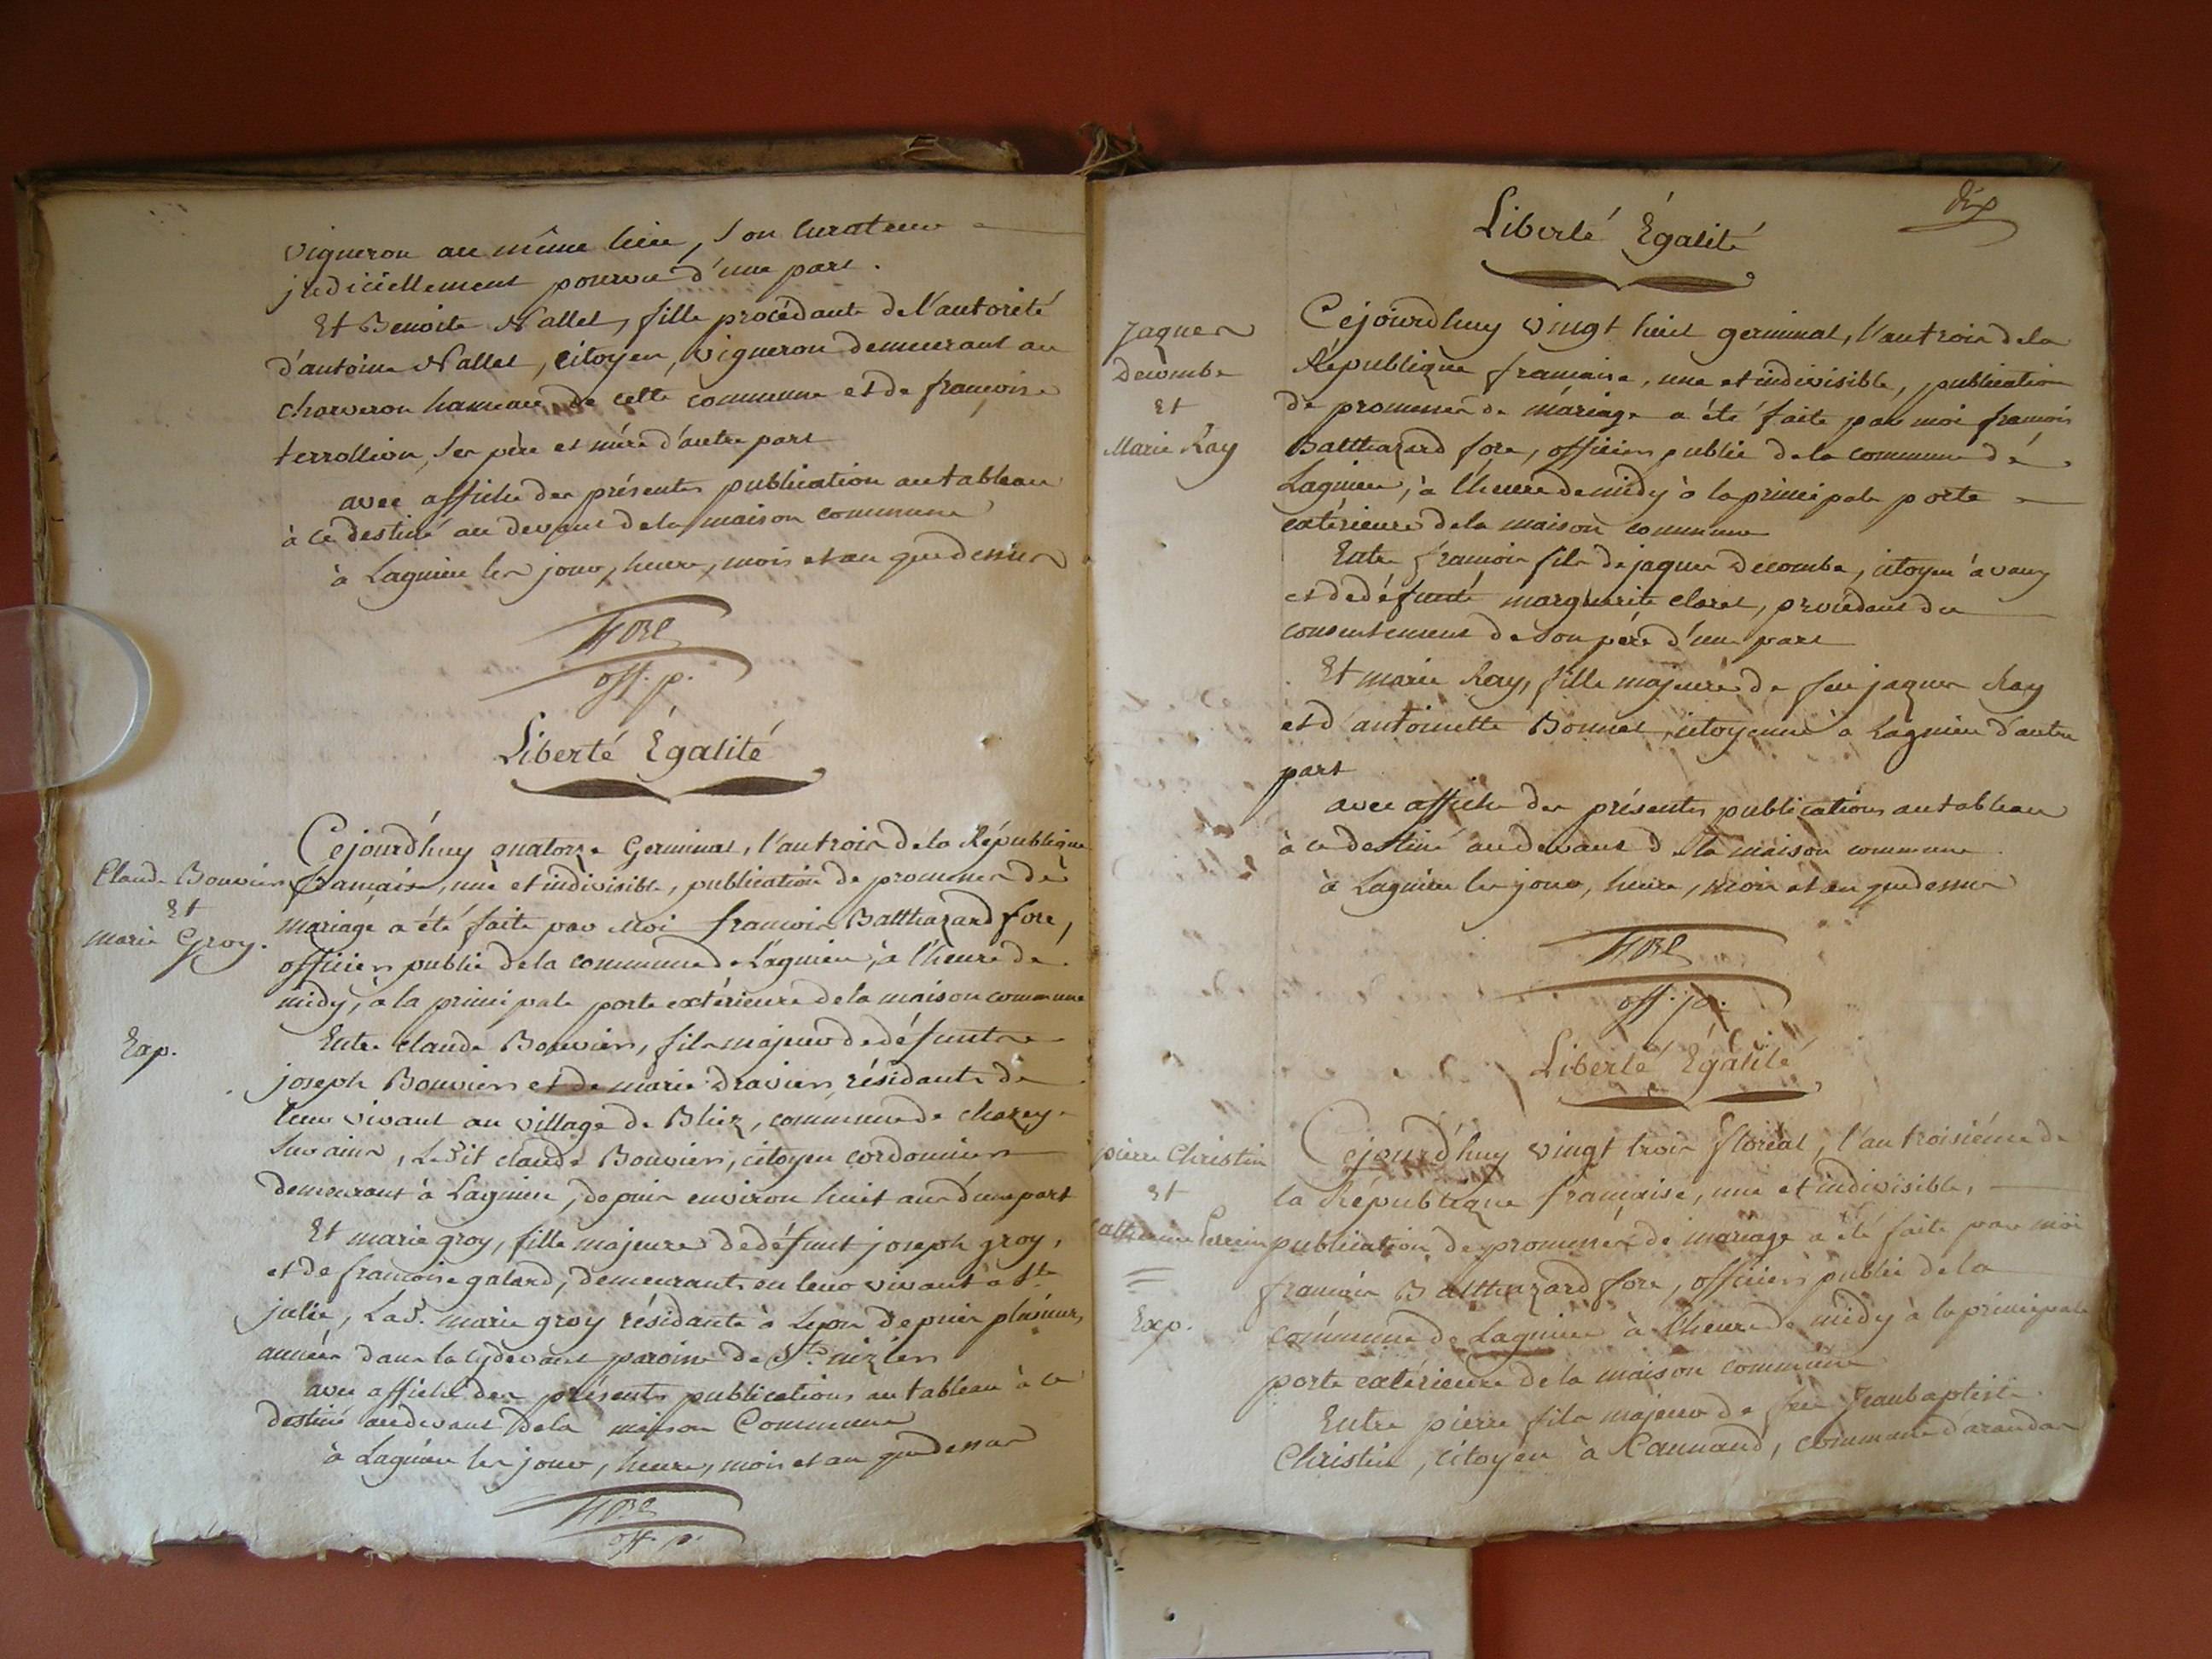 vigneron au même lieu, son curateur
judiciellement pourvu d'une part.
Et Benoite Nallet, fille procédante de l'autorité
d'antoine Nallet, citoyen, vigneron demeurant au
charveron hameau de cette commune et de françoise
terrollion, ses père et mère d'autre part
avec affiche des présentes publication au tableau
à ce destiné au devant de la maison commune
à Lagnieu les jour, heure, mois et an que dessus
Fore
off. p.
Liberté Égalité
Claude Bouvier
Et
marie Groy.
Exp.
Cejourd'huy quatorze Germinal, l'an trois de la République
française, une et indivisible, publication de promesses de
mariage a été faite par Moi françois Balthazard fore,
officier public de la commune de Lagnieu, à l'heure de
midy, à la principale porte extérieure de la maison commune
Entre claude Bouvier, fils majeur de défunts
joseph Bouvier et de marie dravier, résidants de
leur vivant au village de Bliez, commune de chazey
Sur ains, Ledit claude Bouvier, citoyen cordonnier
demeurant à Lagnieu, depuis environ huit ans d'une part
Et marie groy, fille majeure de défunt joseph groy,
et de françoise galard, demeurants en leur vivant à Ste
julie, Lad. marie groy résidante à Lyon depuis plusieurs
années dans la cydevant paroisse de St nizier
avec affiche des présentes publications au tableau à ce
destiné audevant de la maison Commune
à Lagnieu les jour, heure, mois et an que dessus
Fore
off. p.
dix
Liberté Égalité
Jaques
Decombe
Et
Marie Ray
Cejourdhuy vingt huit germinal, l'an trois de la
République française, une et indivisible, publication
de promesses de mariage a été faite par moi françois
Balthazard fore, officier public de la commune de
Lagnieu, à l'heure de midy à la principale porte
extérieure de la maison commune
Entre françois fils de jaques Decombe, citoyen à vaux
et de défunte marguerite claret, procédant du
consentement de son père d'une part
Et marie Ray, fille majeure de feu jaques Ray
et d'antoinette Bonnet, citoyenne à Lagnieu d'autre
part
avec affiche des présentes publications au tableau
à ce destiné audevant de la maison commune
à Lagnieu les jour, heure, mois et an que dessus
Fore
off. p.
Liberté Égalité
pierre Christin
Et
Catherine Perrin
Exp.
Cejourd'huy vingt trois floréal, l'an troisième de
la République française, une et indivisible,
publication de promesses de mariage a été faite par moi
françois Balthazard fore, officier public de la
commune de Lagnieu à l'heure de midy à la principale
porte extérieure de la maison commune
Entre pierre fils majeur de feu Jeanbaptiste
Christin, citoyen à, commune d'arandas